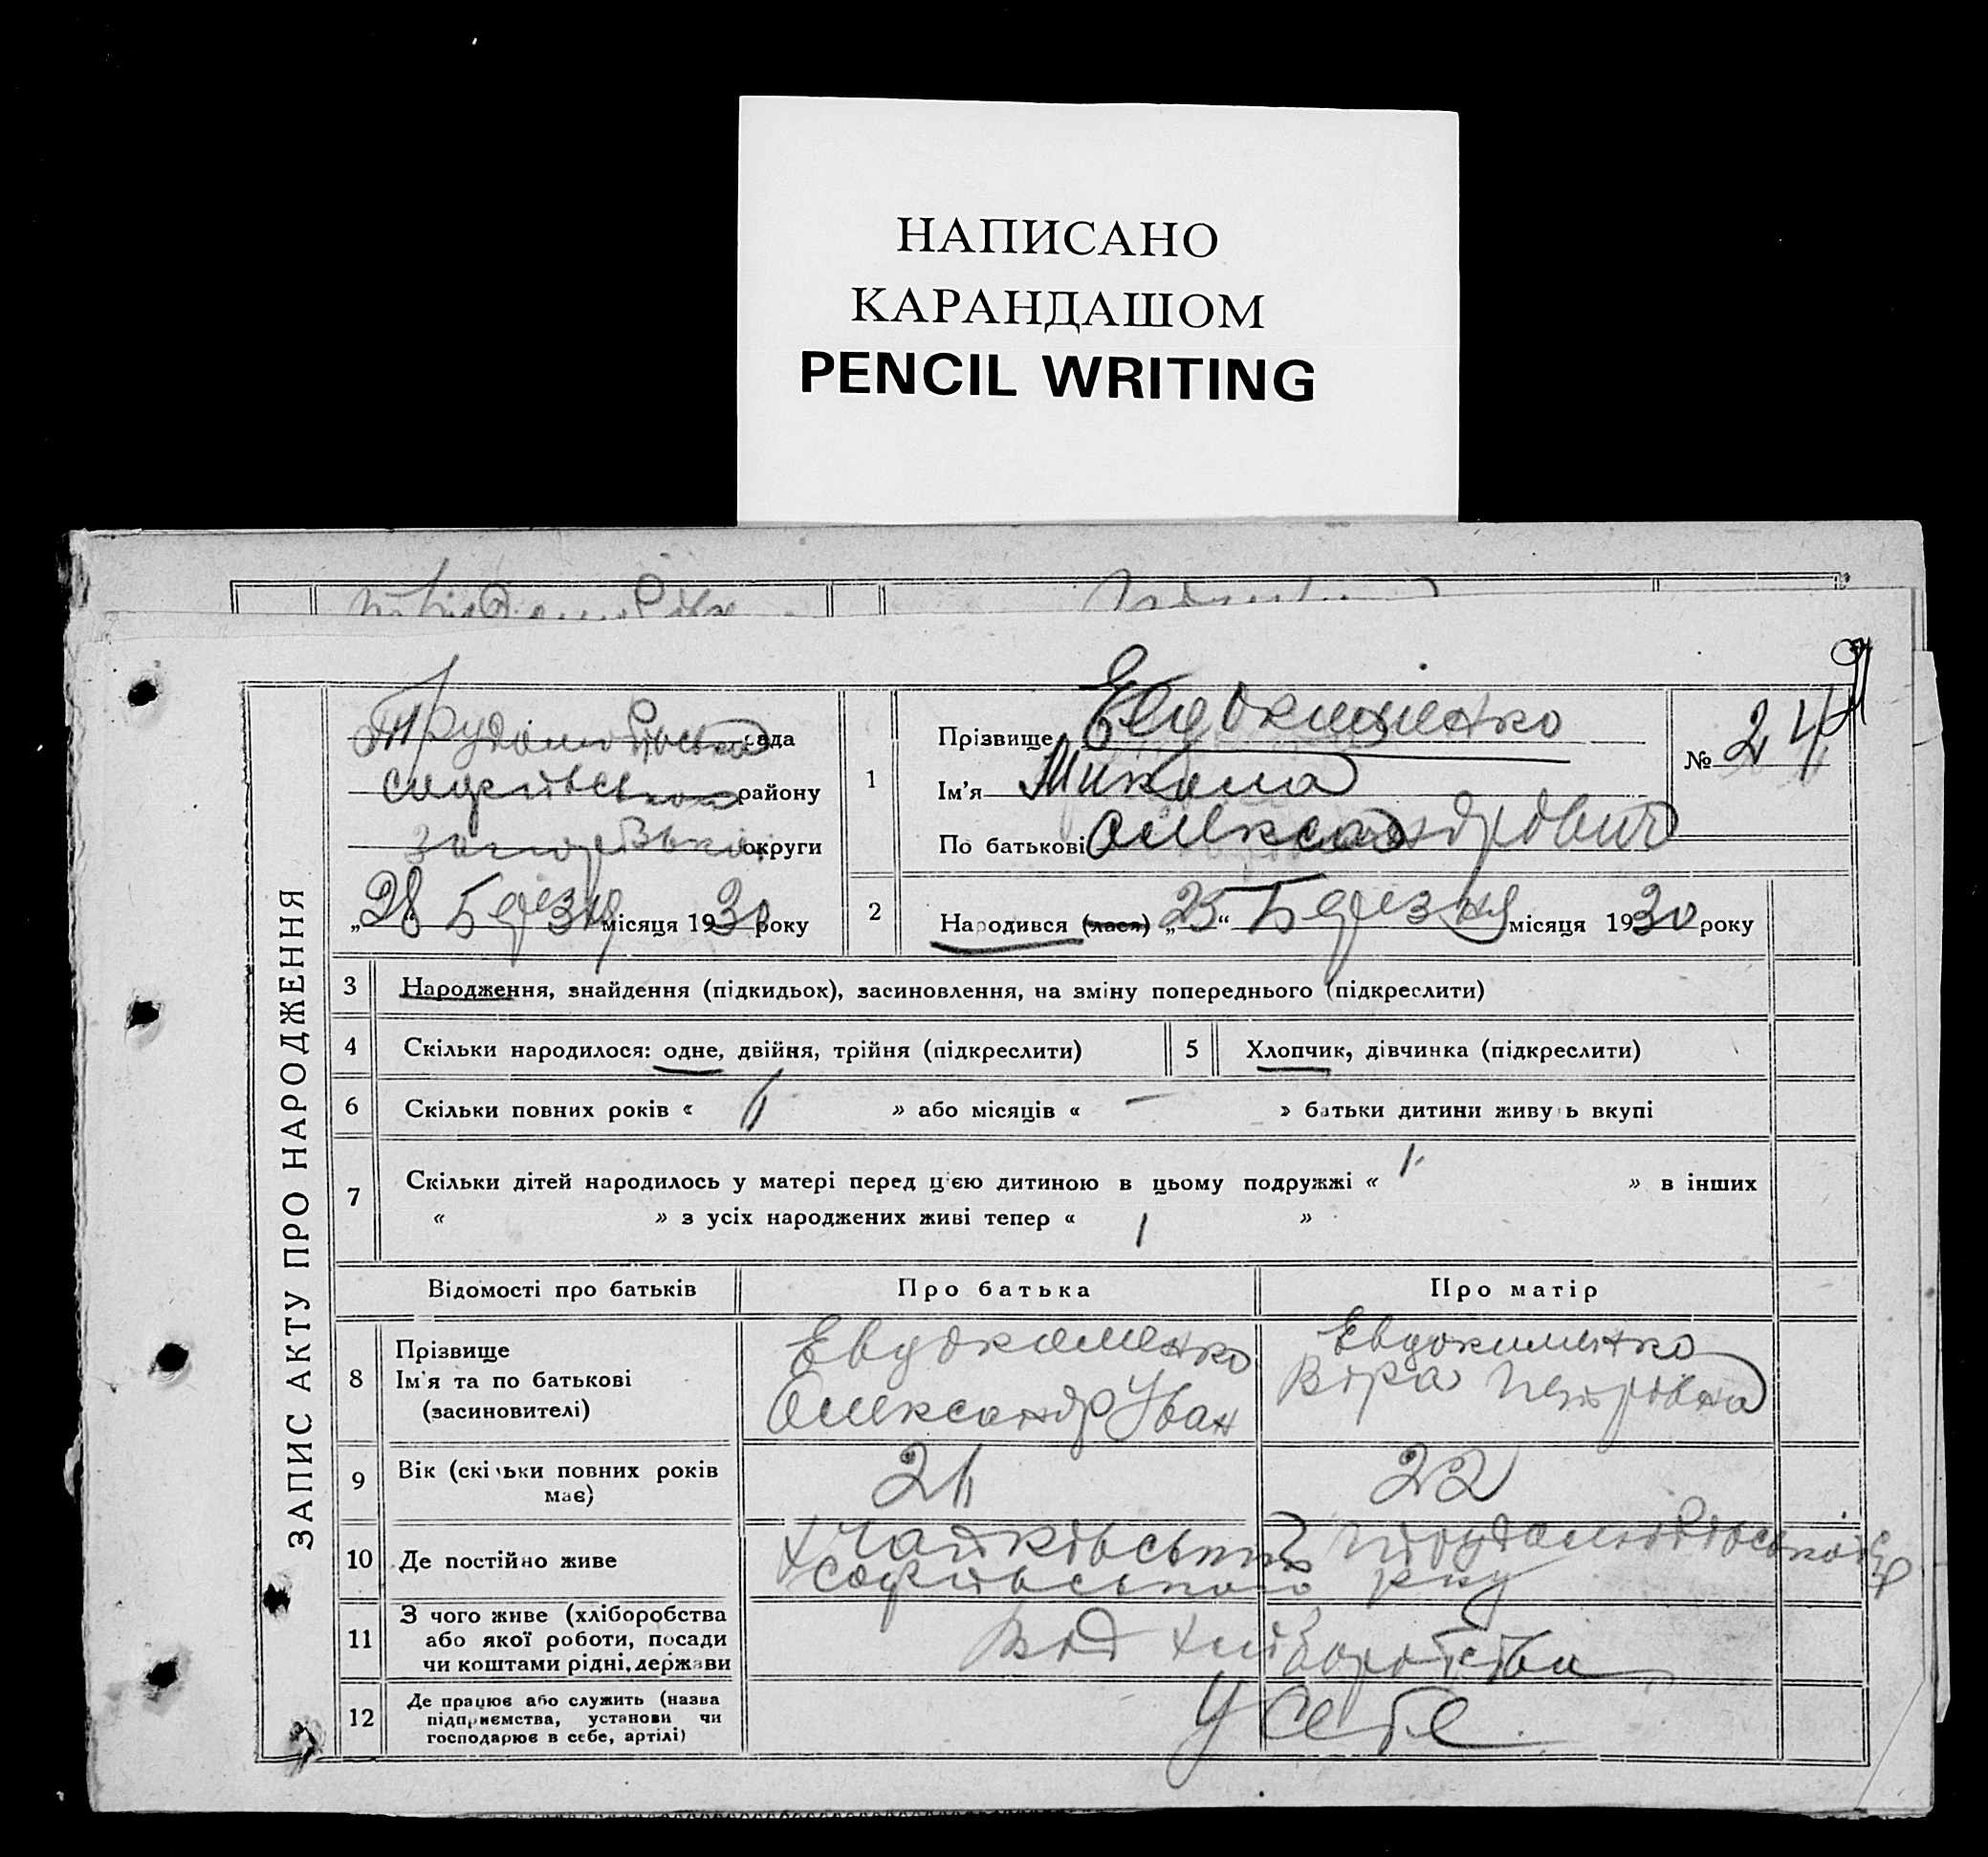 НАПИСАНО
КАРАНДАШОМ
PENCIL WRITING
ЗАПИС АКТУ ПРО НАРОДЖЕННЯ
рада
району
округи
„28 Березня місяця 1930 року
1
Прізвище Евдокименко
Ім'я Микола
По батькові Олександрович
№ 24
2
Народився (лася) „25“ Березня місяця 1930 року
3 Народження, знайдення (підкидьок), засиновлення, на зміну попереднього (підкреслити)
4 Скільки народилося: одне, двійня, трійня (підкреслити) 5 Хлопчик, дівчинка (підкреслити)
6 Скільки повних років « » або місяців « — » батьки дитини живуть вкупі
7 Скільки дітей народилось у матері перед цією дитиною в цьому подружжі « 1 » в інших
« » з усіх народжених живі тепер « 1 »
Відомості про батьків Про батька Про матір
8 Прізвище
Ім'я та по батькові
(засиновителі)
Евдокименко
Олександр Іван
Евдокименко
Віра Петрівна
9 Вік (скільки повних років
має)
22
10 Де постійно живе
11 З чого живе (хліборобства
або якої роботи, посади
чи коштами рідні, держави
від хліборобства
12 Де працює або служить (назва
підприємства, установи чи
господарює в себе, артілі)
У себе